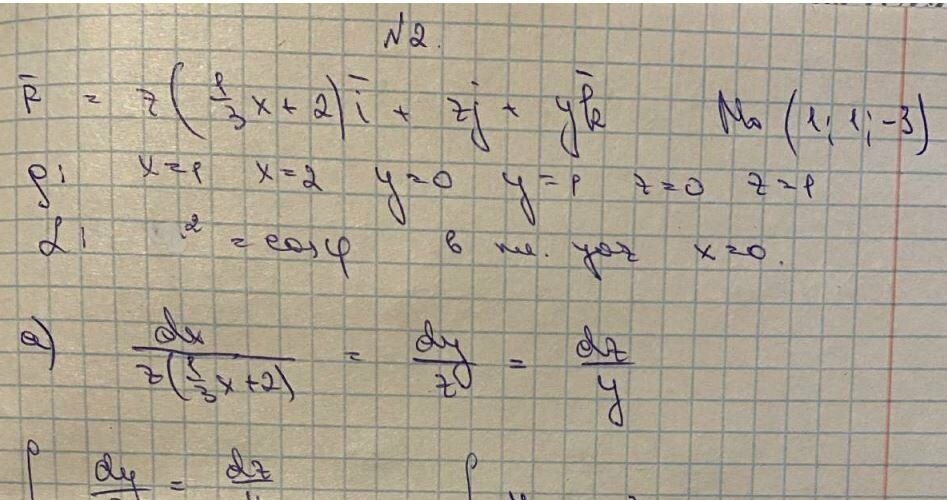 №2.
F̄ = z(1/3 x + 2)ī + zj̄ + yk̄   M₀ (1; 1; -3)
ρ: x=1 x=2 y=0 y=1 z=0 z=1
L: ² = cosφ в пл. yoz x=0.
a) dx / z(1/3 x+2) = dy / z = dz / y
∫ dy = dz ∫